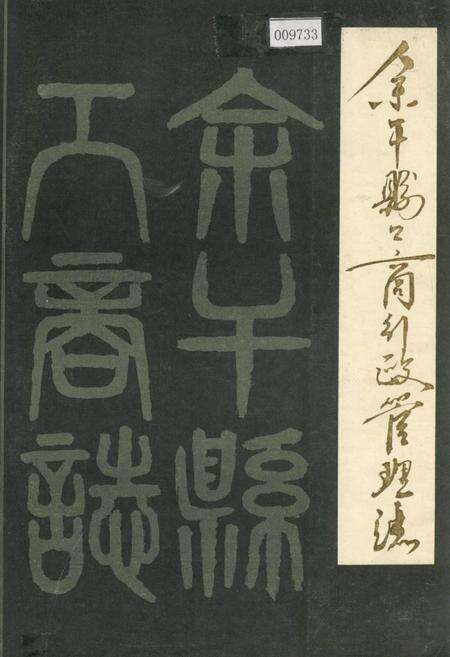 009733
余干縣工商行政管理誌
余干縣
工商誌